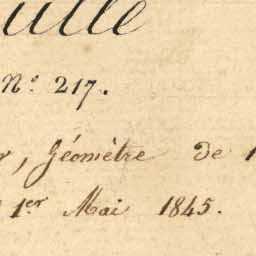 ille
N° 217.
r, Géomètre de 1
1er Mai 1845.